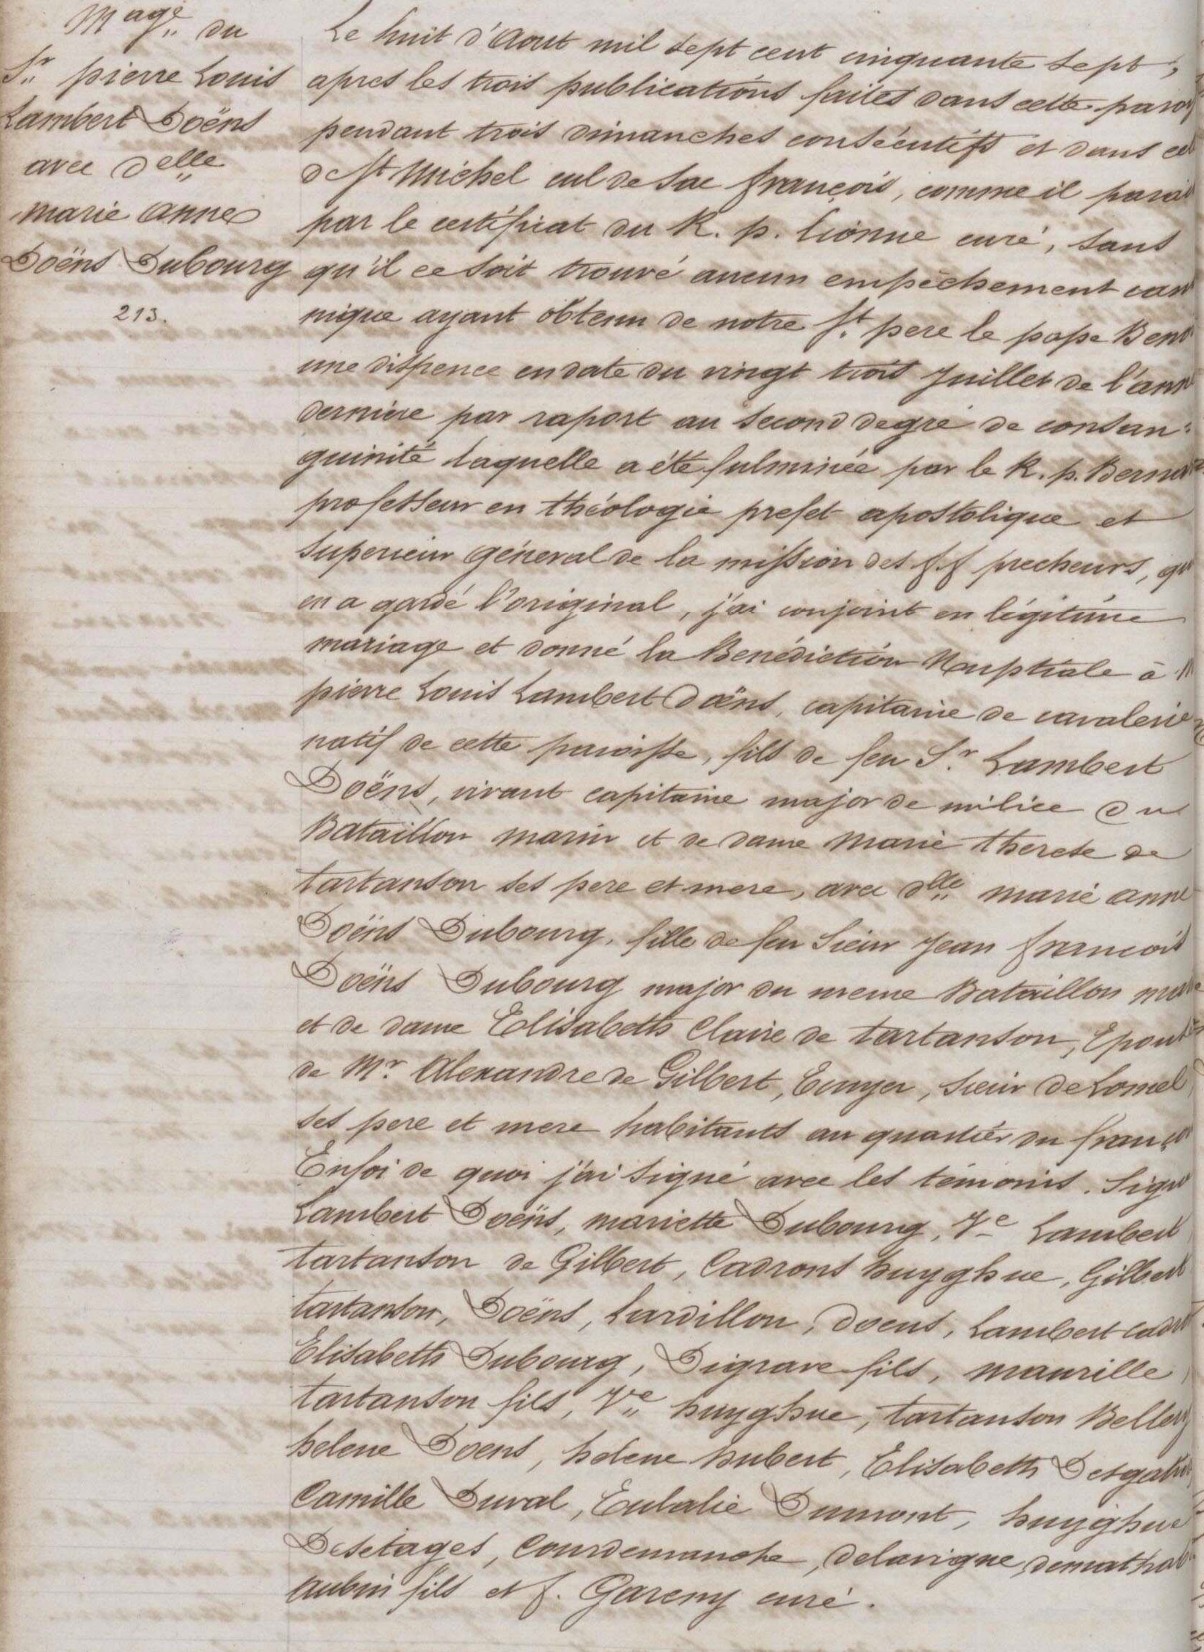 Mage. du
Sr. pierre Louis
Lambert Doëns
avec delle
marie anne
Doëns Dubourg
213.
Le huit d'Aout mil sept cent cinquante sept,
apres les trois publications failes dans cette paro
pendant trois dimanches consécutifs et dans ce
de St Michel cul de Sac françois, comme il parai
par le certificat du R. p. Lionne curé, sans
qu'il ce soit trouvé aucun empêchement can
nique ayant obtenu de notre St. pere le pape Beno
une dispence en date du vingt trois Juillet de l'ann
derniere par raport au second degré de consan=
guinité laquelle a été fulminée par le R. p. Berna
professeur en théologie prefet apostolique et
Superieur géneral de la mission des ff precheurs, qu
en a gardé l'original, j'ai conjoint en légitime
mariage et donné la Benédiction Nuptiale à M
pierre Louis Lambert Doëns, capitaine de cavalerie
natif de cette paroisse, fils de feu Sr. Lambert
Doëns, vivant capitaine major de milice du
Bataillon marin et de dame Marie therese de
tartanson ses pere et mere, avec delle marie anne
Doëns Dubourg, fille de feu Sieur Jean françois
Doëns Dubourg major du meme Bataillon mari
et de dame Elisabeth Claire de tartanson, Epous
de Mr. Alexandre de Gilbert, Ecuyer, Sieur de Lomel
ses pere et mere habitants au quartier du franço
Enfoi de quoi j'ai signé avec les témoins. Signé
Lambert Doëns, mariette Dubourg, Ve Lambert
tartanson de Gilbert, Cadrons huyghue, Gilbert
tartanson, Doëns, Lardillon, doens, Lambert cadet
Elisabeth Dubourg, Digrave fils, maurille,
tartanson fils, Ve huyghue, tartanson Belle
helene Doens, helene hubert, Elisabeth
Camille Duval, Eulalie Dumont, huyghue
Desetages, Courdemanche, delavigne,
Aubin fils et f. Gareny curé.